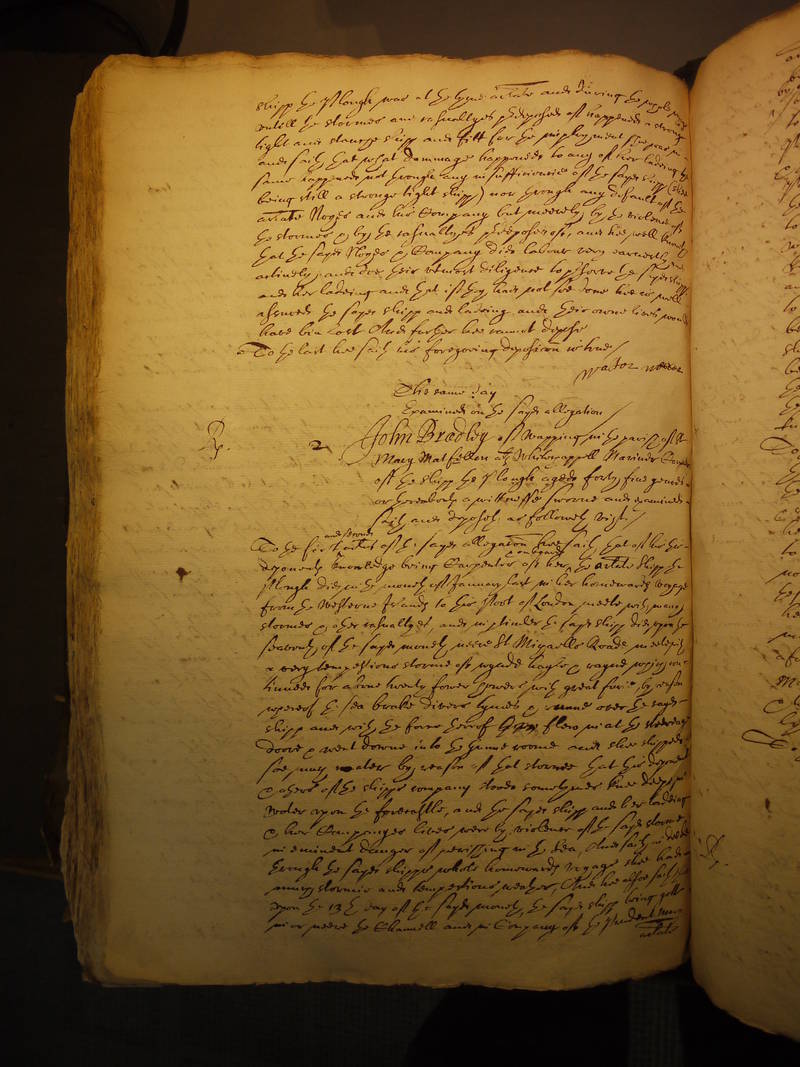 shipp the Plough was at the tyme arlate and during the
untill the stormes and casualtyes predeposed of happened a strong
tight and staunch shipp and fitt for the imployment shee was in
and saith that what dammage happened to any of her ladeing the
same happened not through any insufficiencie of the sayd shipp (shee
being still a stronge tight shipp) nor through any default of the
arlate Noyes and his Company but meerely by the violence of
the stormes & by the casualtyes predeposed of, and hee well knoweth
that the sayd Noyes & Company did labour very earnestly and
actively, and doe their utmost diligence to preserve the sayd shipp
and her ladeing and that if they had not soe done hee is well
assured the sayd shipp and ladeing and their owne lives would
have bin lost And further hee cannot depose
To the last hee saith his foregoing deposition is true/
The same day
Examined on the sayd allegation/
Rp. 2. John Bradley of Wapping in the parish of St
Mary Matfellon als Whitechappell Mariner
of the shipp the Plough aged forty five yeares
or thereabouts a wittnesse sworne and examined
saith and deposeth as followeth vizt./
and second
To the first articles of the sayd allegation hee saith that of his this
deponents knowledge being Carpenter of her the arlate shipp the
Plough did in the moneth of January last in her homewards voyage
from the Westerne Islands to this Port of London meete with many
stormes & other casualtyes, and in particuler the sayd shipp did upon the
seaventh of the sayd moneth neere St Migaells Roade meete with
a very tempestious storme of wynde hayle & rayne which con-
tinued for about twenty fower howers with great furie by reason
whereof the sea brake divers tymes & runne over the sayd
shipp and with the force thereof flew in at the steeredge
doore & went downe into the gunne roome and shee shipped
soe much water by reason of that storme that this deponent
& others of the shipps company stood sometymes knee deepe in
water upon the forecastle, and the sayd shipp and her ladeing
& her Companyes lives were by violence of the sayd storme
in eminent danger of perishing in the sea, And saith indeede
through the sayd shipps whole homewards voyage shee had
many stormie and tempestious weather, And hee alsoe saith that
upon the 13th day of the sayd moneth, the sayd shipp being gott
in or neere the Channell and in Company of the
arlate